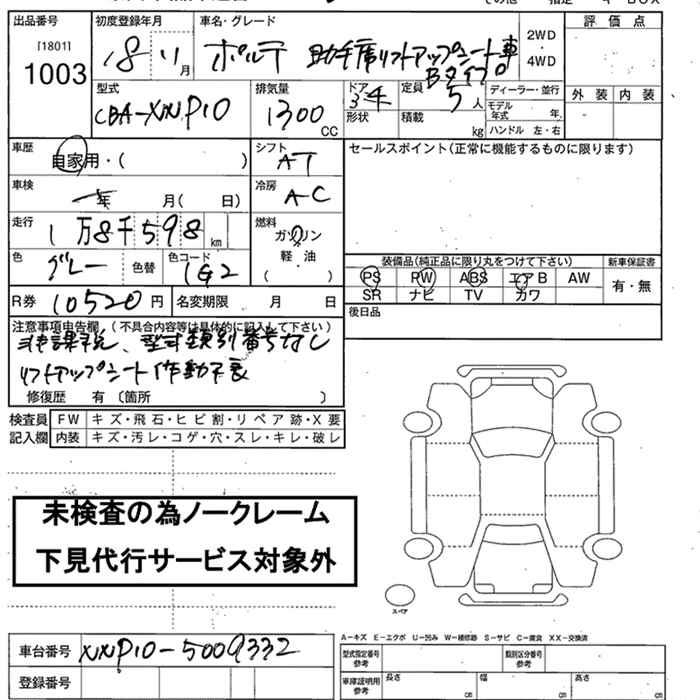 出品番号
[1801]
1003
初度登録年月
18 11月
車名・グレード
ポルテ 助手席リフトアップシート車
Bタイプ
2WD
・
4WD
評価点
外装 内装
型式
CBA-NNP10
排気量
1300
CC
ドア
3
形状
定員
5人
積載
kg
ディーラー・並行
モデル年式 年
ハンドル 左・右
車歴
自家用・( )
シフト
AT
セールスポイント(正常に機能するものに限ります)
車検
年 月( 日)
冷房
AC
走行
1万8千598km
燃料
ガソリン
軽油
( )
色
グレー
色替
色コード
1G2
装備品(純正品に限り丸をつけて下さい)
新車保証書
PS PW ABS エアB AW
SR ナビ TV カワ
有・無
R券 10520円
名変期限 月 日
後日品
注意事項申告欄(不具合内容等は具体的に記入して下さい)
非課税、型式類別番号なし
リフトアップシート作動不良
修復歴 有〔箇所 〕
検査員記入欄
FW キズ・飛石・ヒビ割・リペア跡・X要
内装 キズ・汚レ・コゲ・穴・スレ・キレ・破レ
未検査の為ノークレーム
下見代行サービス対象外
スペア
車台番号 NNP10-5009332
登録番号
A-キズ E-エクボ U-凹み W-補修跡 S-サビ C-腐食 XX-交換済
型式指定番号参考
類別区分番号参考
車庫証明用参考
長さ cm 幅 cm 高さ cm